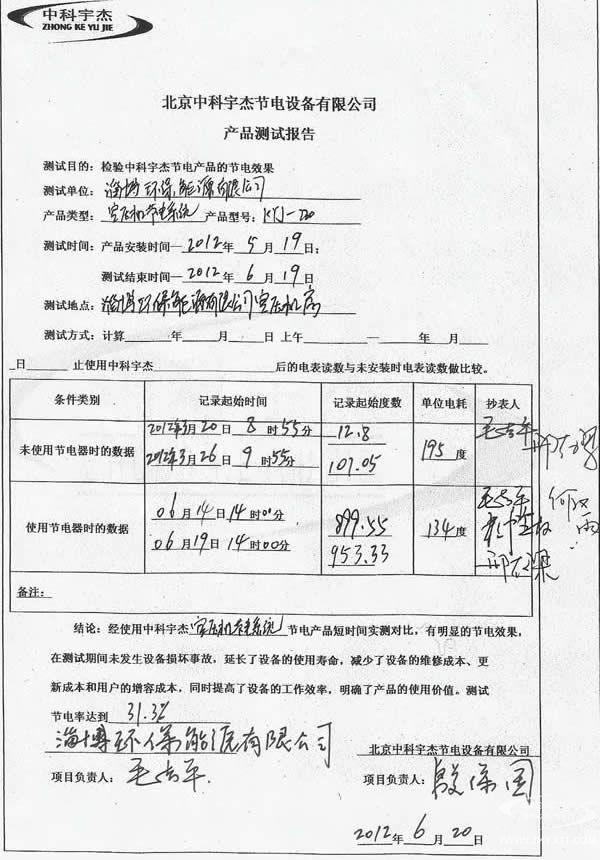 中科宇杰
ZHONG KE YU JIE
北京中科宇杰节电设备有限公司
产品测试报告
测试目的：检验中科宇杰节电产品的节电效果
测试单位：淄博环保能源有限公司
产品类型：空压机节电系统 产品型号：KYJ-220
测试时间：产品安装时间—2012年 5月 19日；
测试结束时间—2012年 6月 19日
测试地点：淄博环保能源有限公司空压机房
测试方式：计算 年 月 日 上午 — 年 月
日 止使用中科宇杰 后的电表读数与未安装时电表读数做比较。
条件类别 记录起始时间 记录起始度数 单位电耗 抄表人
未使用节电器时的数据 2012年3月20日 8时55分 12.8 195度 毛志平
2012年3月26日 9时55分 107.05
使用节电器时的数据 06月14日14时00分 899.55 134度 毛志平
06月19日14时00分 953.33
备注：
结论：经使用中科宇杰空压机节电系统节电产品短时间实测对比，有明显的节电效果，
在测试期间未发生设备损坏事故，延长了设备的使用寿命，减少了设备的维修成本、更
新成本和用户的增容成本，同时提高了设备的工作效率，明确了产品的使用价值。测试
节电率达到 31.3%
淄博环保能源有限公司 北京中科宇杰节电设备有限公司
项目负责人：毛志平 项目负责人：殷保国
2012年 6月 20日